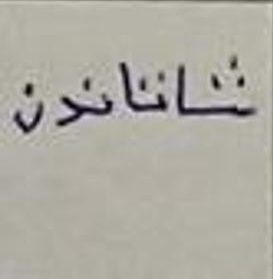 شاناندن